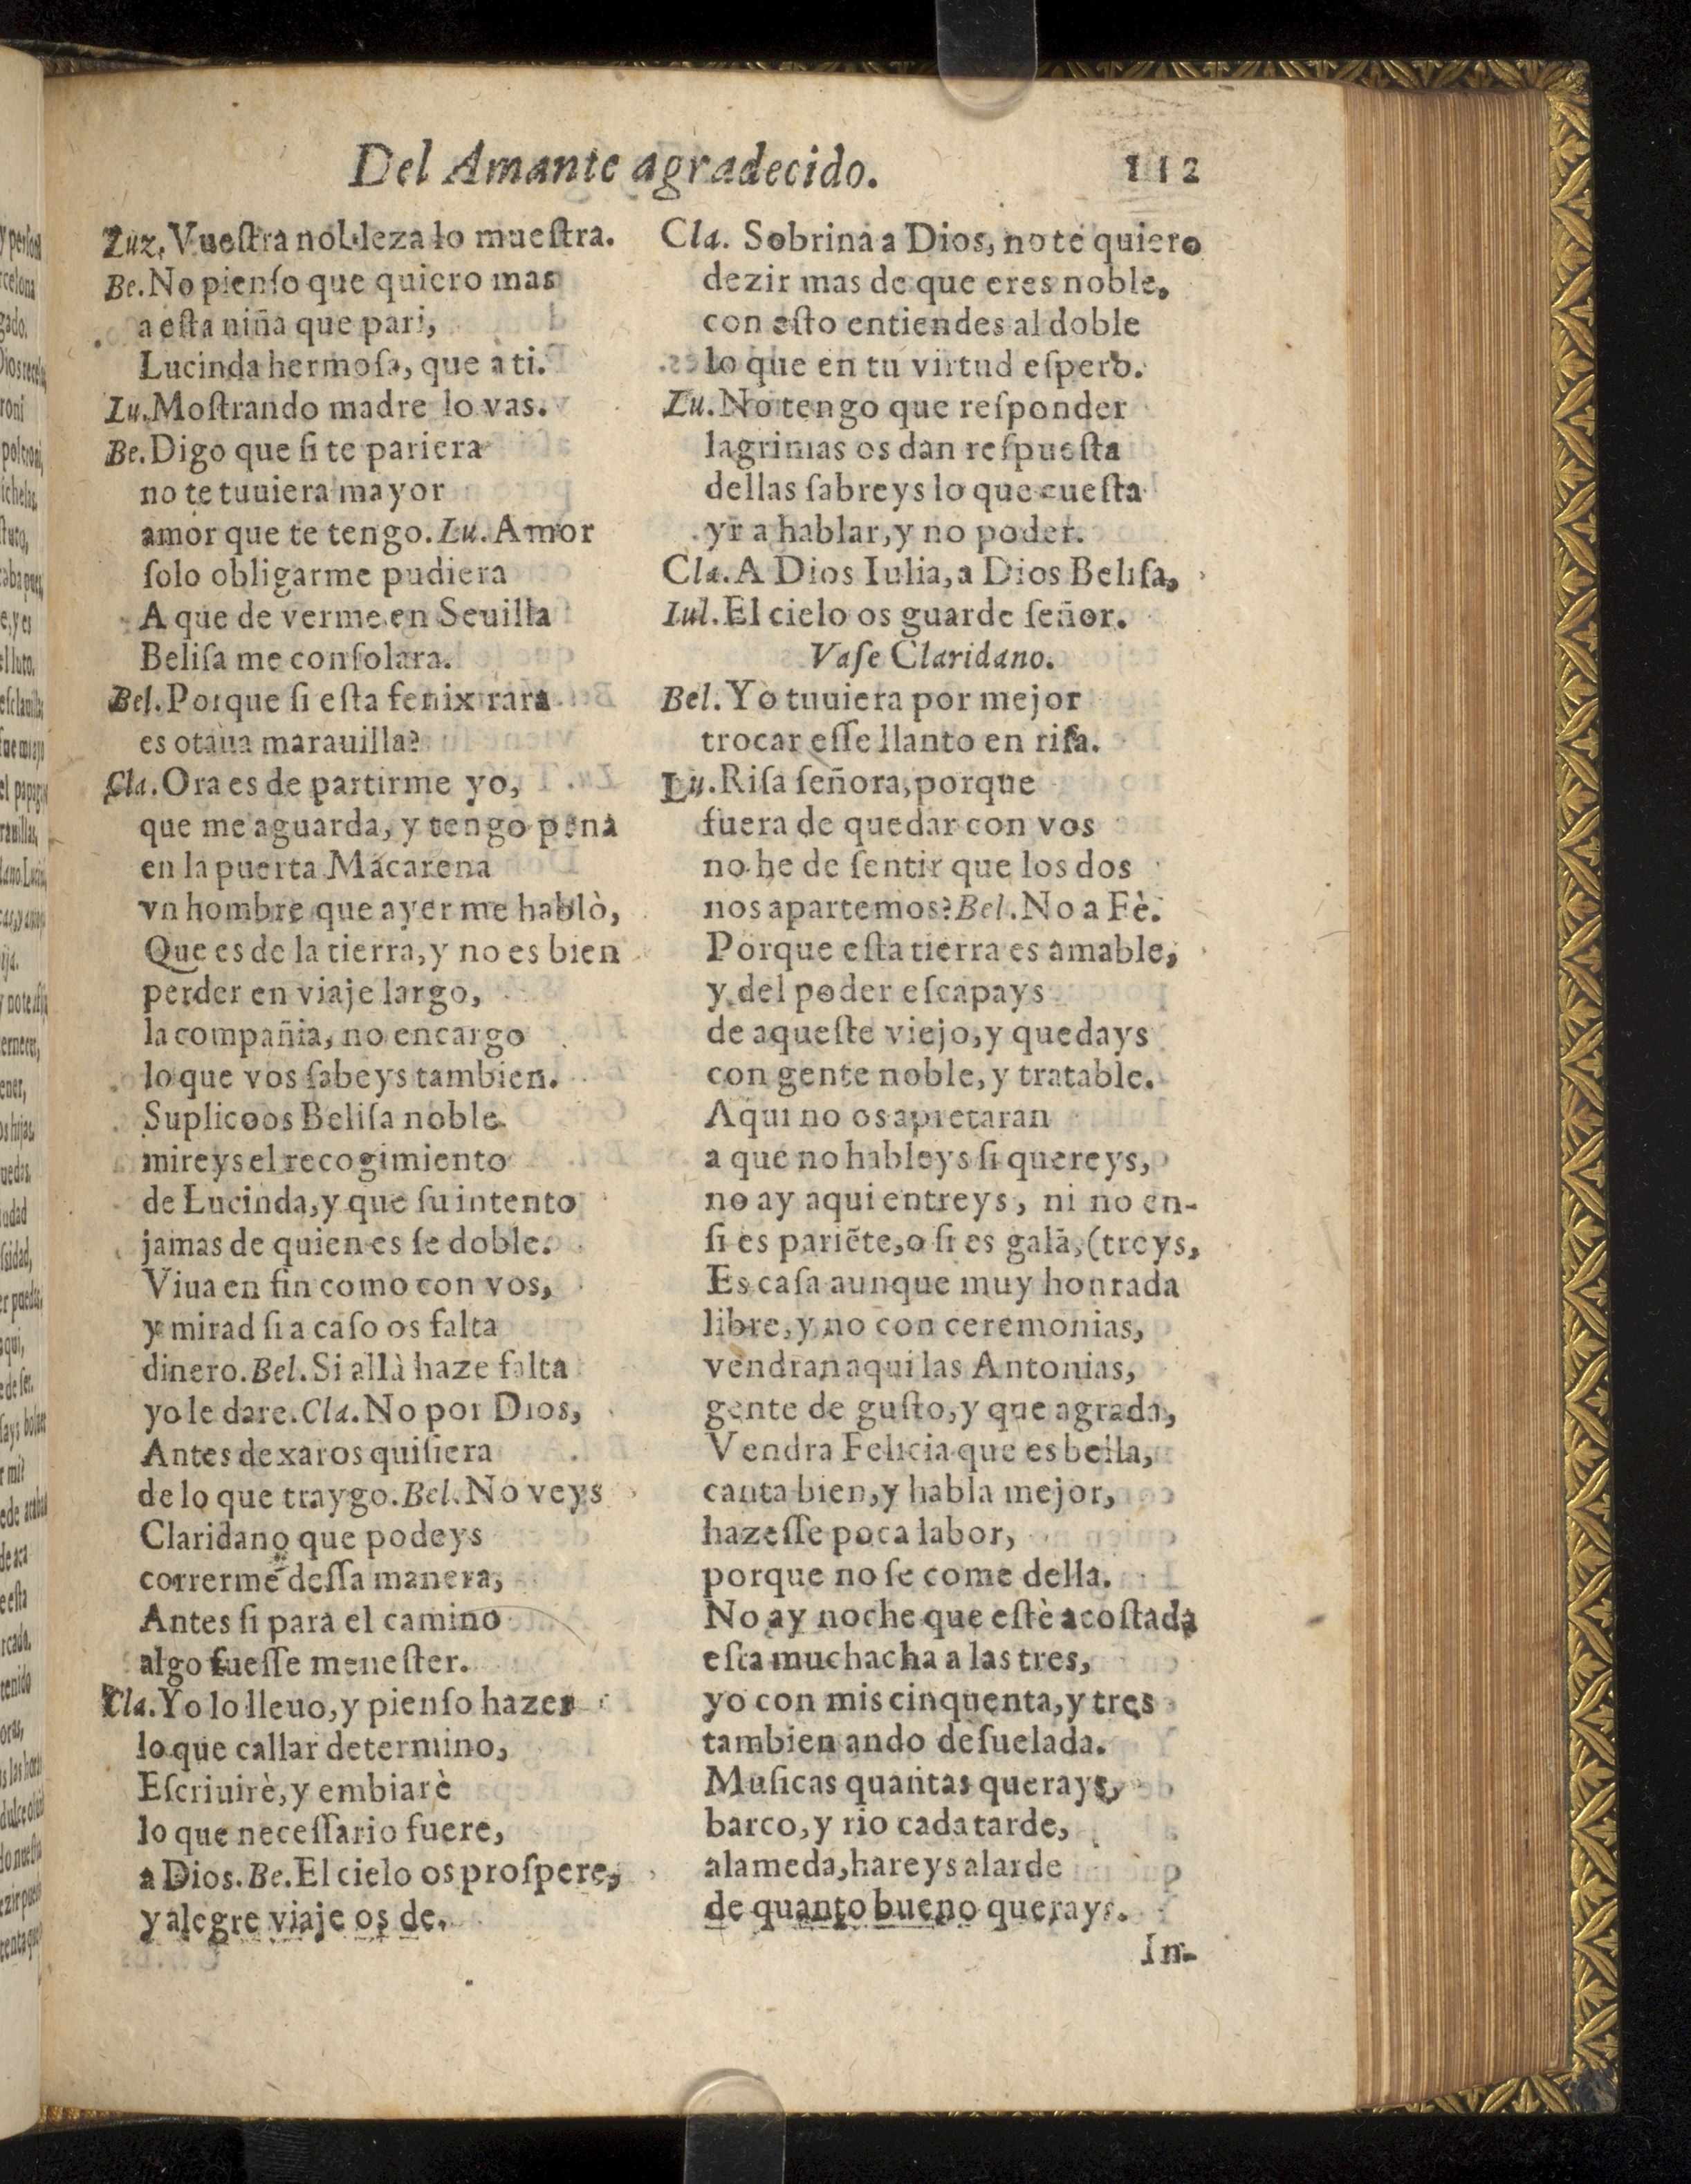 Del Amante agradecido. 112
Luz. Vueſtra nobleza lo mueſtra.
Be. No pienſo que quiero mas
a eſta niña que pari,
Lucinda hermoſa, que a ti.
Lu. Moſtrando madre lo vas.
Be. Digo que ſi te pariera
no te tuuiera mayor
amor que te tengo. Lu. Amor
ſolo obligarme pudiera
A que de verme en Seuilla
Beliſa me conſolara.
Bel. Porque ſi eſta fenix rara
es otaua marauilla?
Cla. Ora es de partirme yo,
que me aguarda, y tengo pena
en la puerta Macarena
vn hombre que ayer me hablò,
Que es de la tierra, y no es bien
perder en viaje largo,
la compañia, no encargo
lo que vos ſabeys tambien.
Suplicoos Beliſa noble
mireys el recogimiento
de Lucinda, y que ſu intento
jamas de quien es ſe doble.
Viua en fin como con vos,
y mirad ſi a caſo os falta
dinero. Bel. Si allà haze falta
yo le dare. Cla. No por Dios,
Antes dexaros quiſiera
de lo que traygo. Bel. No veys
Claridano que podeys
correrme deſſa manera,
Antes ſi para el camino
algo fueſſe meneſter.
Cla. Yo lo lleuo, y pienſo hazer
lo que callar determino,
Eſcriuirè, y embiarè
lo que neceſſario fuere,
a Dios. Be. El cielo os proſpere,
y alegre viaje os de.
Cla. Sobrina a Dios, no te quiero
dezir mas de que eres noble,
con eſto entiendes al doble
lo que en tu virtud eſpero.
Lu. No tengo que reſponder
lagrimas os dan reſpueſta
dellas ſabreys lo que cueſta
yr a hablar, y no poder.
Cla. A Dios Iulia, a Dios Beliſa,
Iul. El cielo os guarde ſeñor.
Vaſe Claridano.
Bel. Yo tuuiera por mejor
trocar eſſe llanto en riſa.
Lu. Riſa ſeñora, porque
fuera de quedar con vos
no he de ſentir que los dos
nos apartemos? Bel. No a Fè.
Porque eſta tierra es amable,
y del poder eſcapays
de aqueſte viejo, y quedays
con gente noble, y tratable.
Aqui no os apretaran
a que no hableys ſi quereys,
no ay aqui entreys, ni no en-
ſi es pariẽte, o ſi es galã, (treys,
Es caſa aunque muy honrada
libre, y no con ceremonias,
vendran aqui las Antonias,
gente de guſto, y que agrada,
Vendra Felicia que es bella,
canta bien, y habla mejor,
hazeſſe poca labor,
porque no ſe come della.
No ay noche que eſtè acoſtada
eſta muchacha a las tres,
yo con mis cinquenta, y tres
tambien ando deſuelada.
Muſicas quantas querays,
barco, y rio cada tarde,
alameda, hareys alarde
de quanto bueno querays.
In-